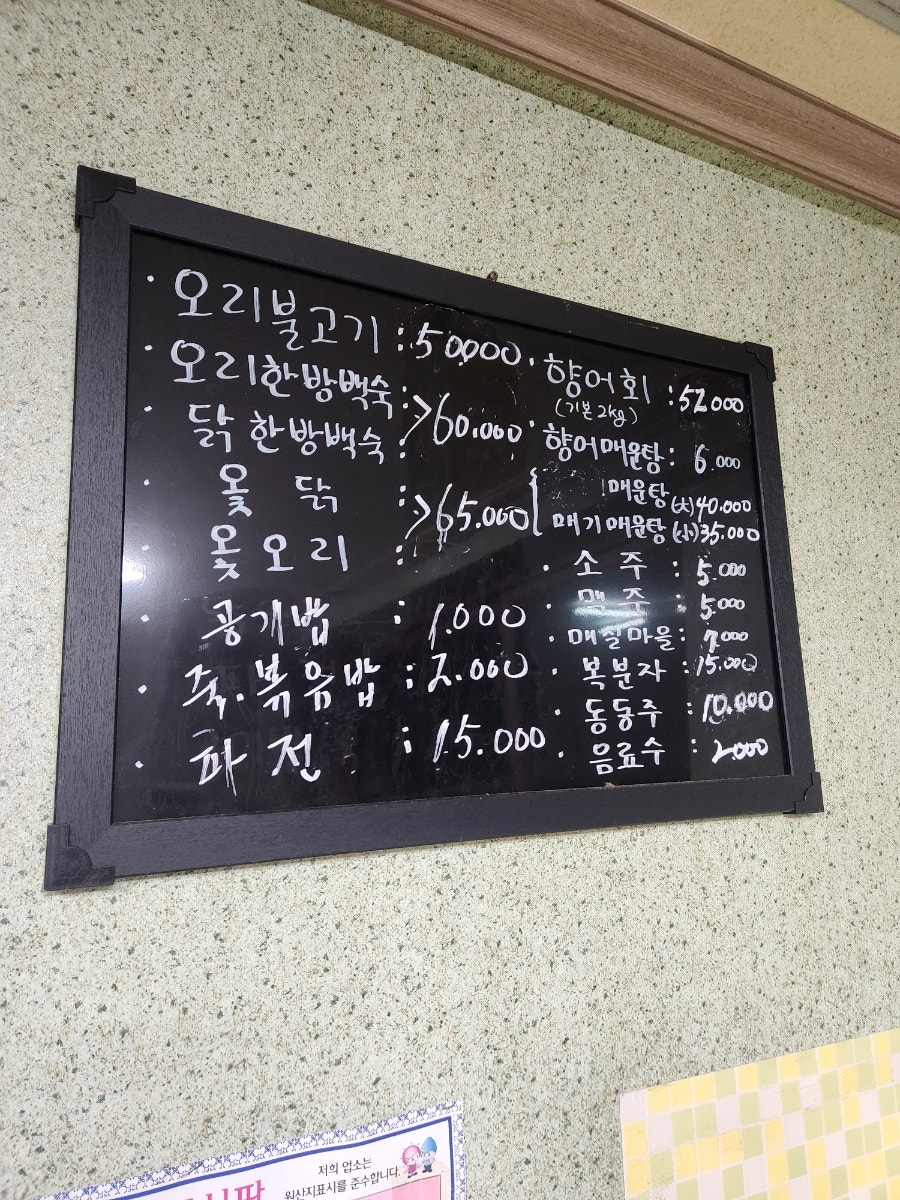 · 오리불고기 : 50,000
· 오리한방백숙 :
· 닭한방백숙 : >60.000
· 옻 닭 :
· 옻오리 : >65.000
· 공기밥 : 1.000
· 죽.볶음밥 : 2.000
· 파전 : 15.000
· 향어회 : 52000
(기본 2kg)
· 향어매운탕 : 6.000
매운탕 (大) 40.000
메기매운탕 (小) 35.000
· 소주 : 5.000
· 맥주 : 5.000
· 매실마을 : 7.000
· 복분자 : 15.000
· 동동주 : 10.000
· 음료수 : 2000
저희 업소는
원산지표시를 준수합니다.